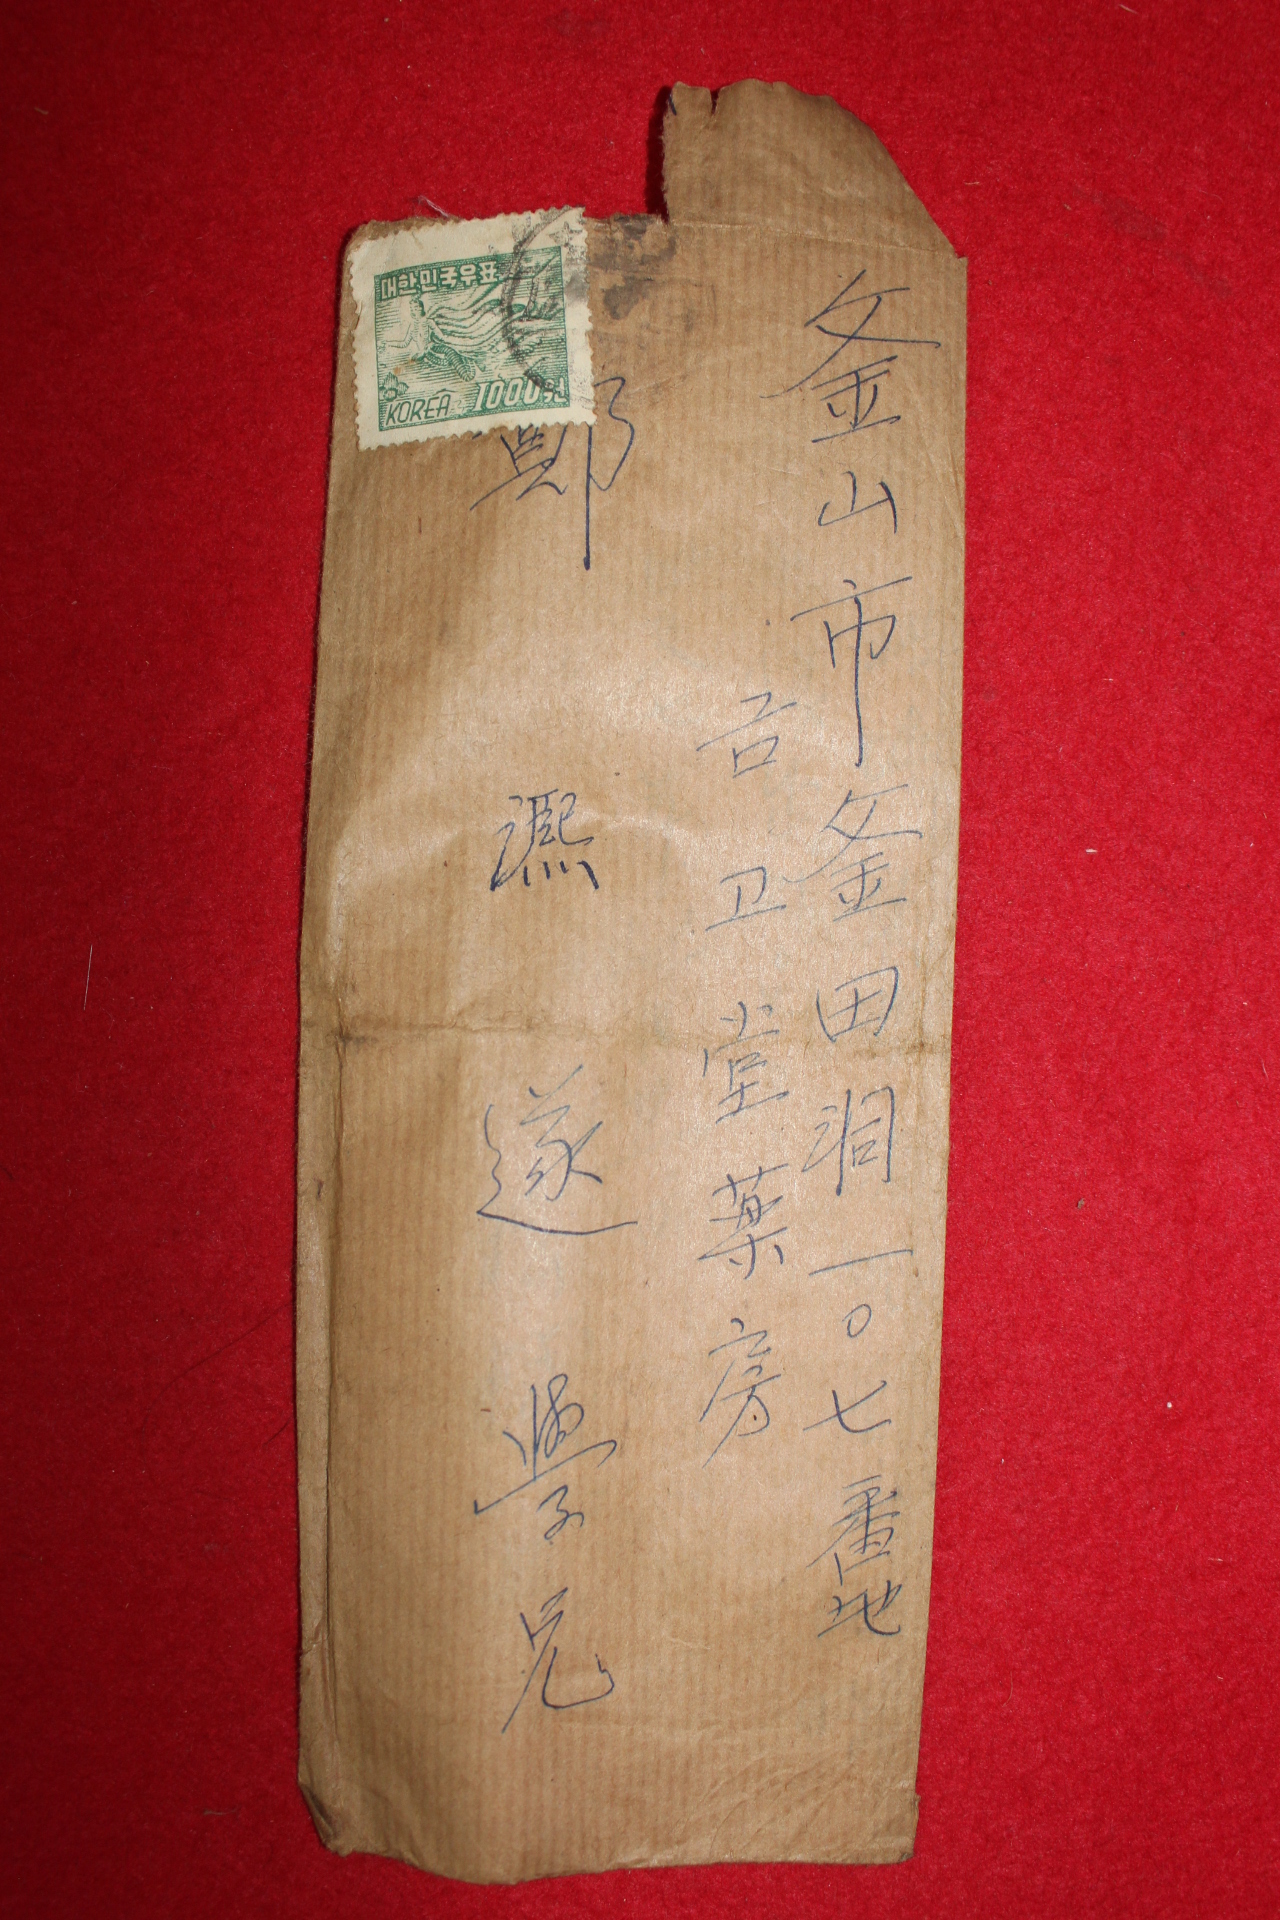 釜山市釜田洞一〇七番地
卫堂薬房
鄭 遂 學兄
대한민국우표
KOREA 1000원